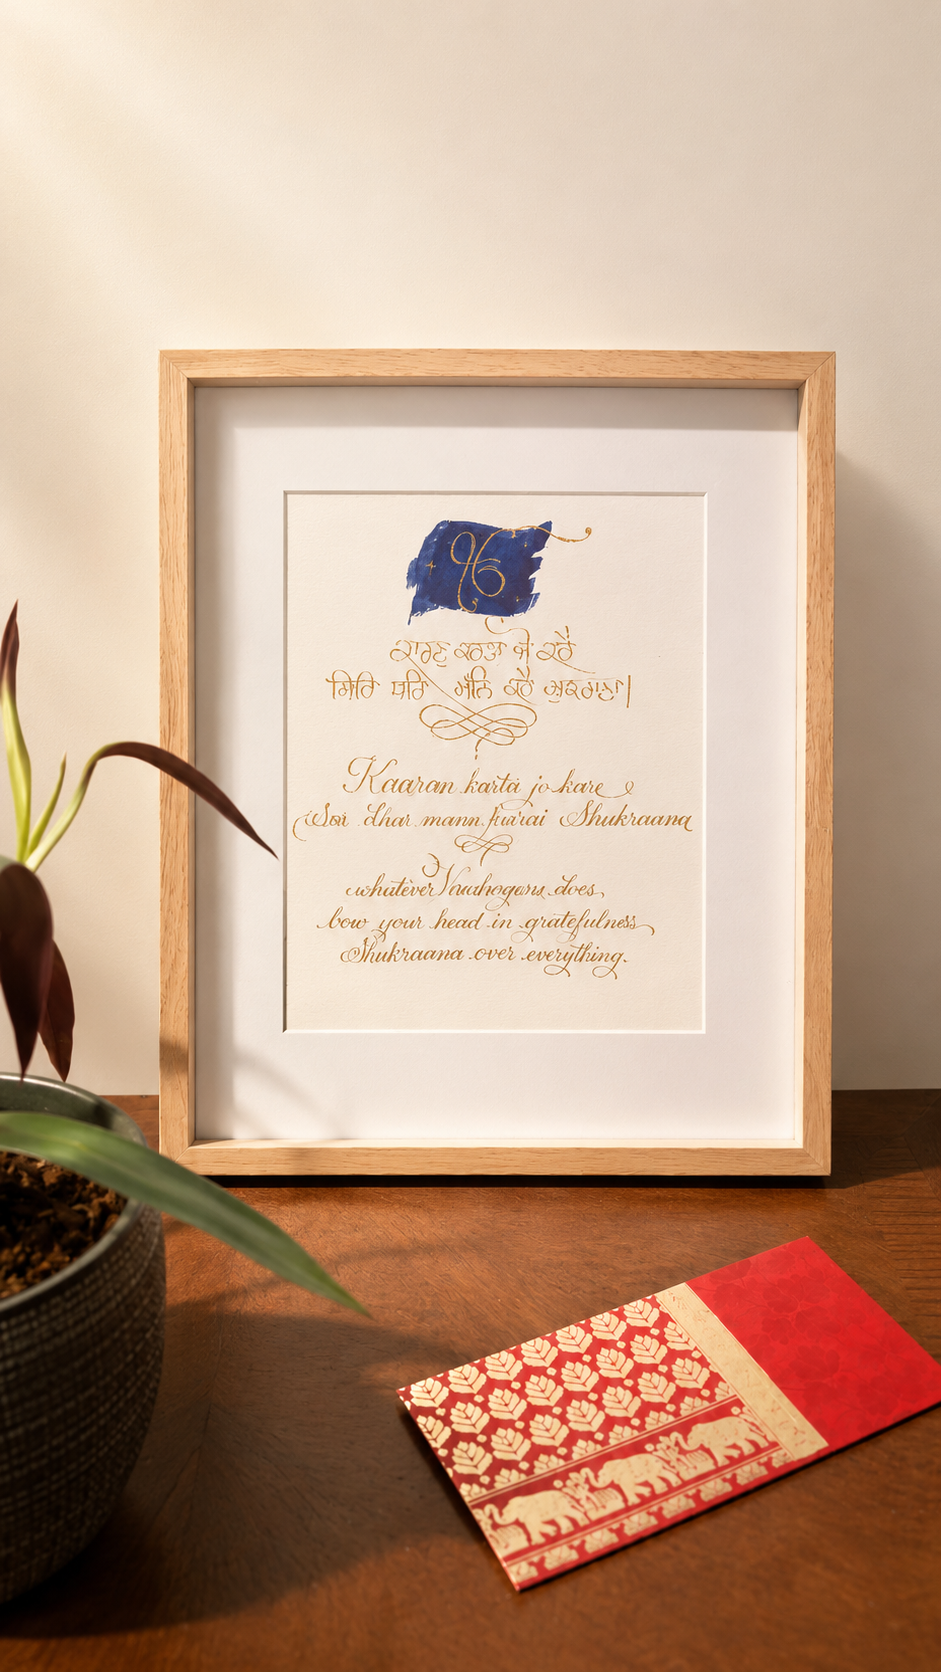 ੴ
ਕਾਰਣ ਕਰਤਾ ਜੋ ਕਰੈ
ਸਿਰਿ ਧਰਿ ਮੰਨਿ ਕਰੈ ਸ਼ੁਕਰਾਨਾ।
Kaaran karta jo kare
dhar mann Shukraana
whatever does,
bow your head in gratefulness
Shukraana over everything.